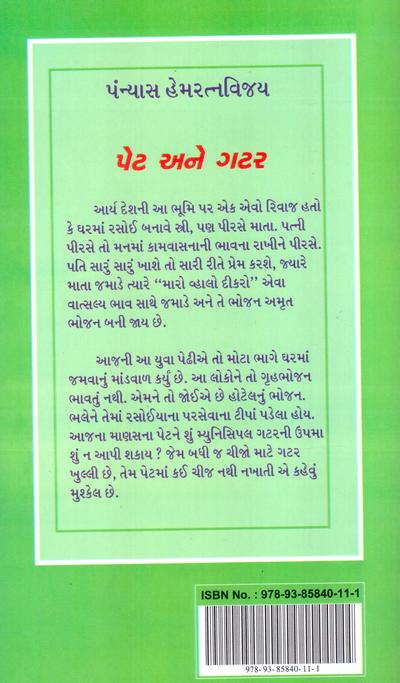 પંન્યાસ હેમરત્નવિજય
પેટ અને ગટર
આર્ય દેશની આ ભૂમિ પર એક એવો રિવાજ હતો
કે ઘરમાં રસોઈ બનાવે સ્ત્રી, પણ પીરસે માતા. પત્ની
પીરસે તો મનમાં કામવાસનાની ભાવના રાખીને પીરસે.
પતિ સારું સારું ખાશે તો સારી રીતે પ્રેમ કરશે, જ્યારે
માતા જમાડે ત્યારે “મારો વ્હાલો દીકરો” એવા
વાત્સલ્ય ભાવ સાથે જમાડે અને તે ભોજન અમૃત
ભોજન બની જાય છે.
આજની આ યુવા પેઢીએ તો મોટા ભાગે ઘરમાં
જમવાનું માંડવાળ કર્યું છે. આ લોકોને તો ગૃહભોજન
ભાવતું નથી. એમને તો જોઈએ છે હોટેલનું ભોજન.
ભલેને તેમાં રસોઈયાના પરસેવાના ટીપાં પડેલા હોય.
આજના માણસના પેટને શું મ્યુનિસિપલ ગટરની ઉપમા
શું ન આપી શકાય ? જેમ બધી જ ચીજો માટે ગટર
ખુલ્લી છે, તેમ પેટમાં કઈ ચીજ નથી નખાતી એ કહેવું
મુશ્કેલ છે.
ISBN No. : 978-93-85840-11-1
978-93-85840-11-1